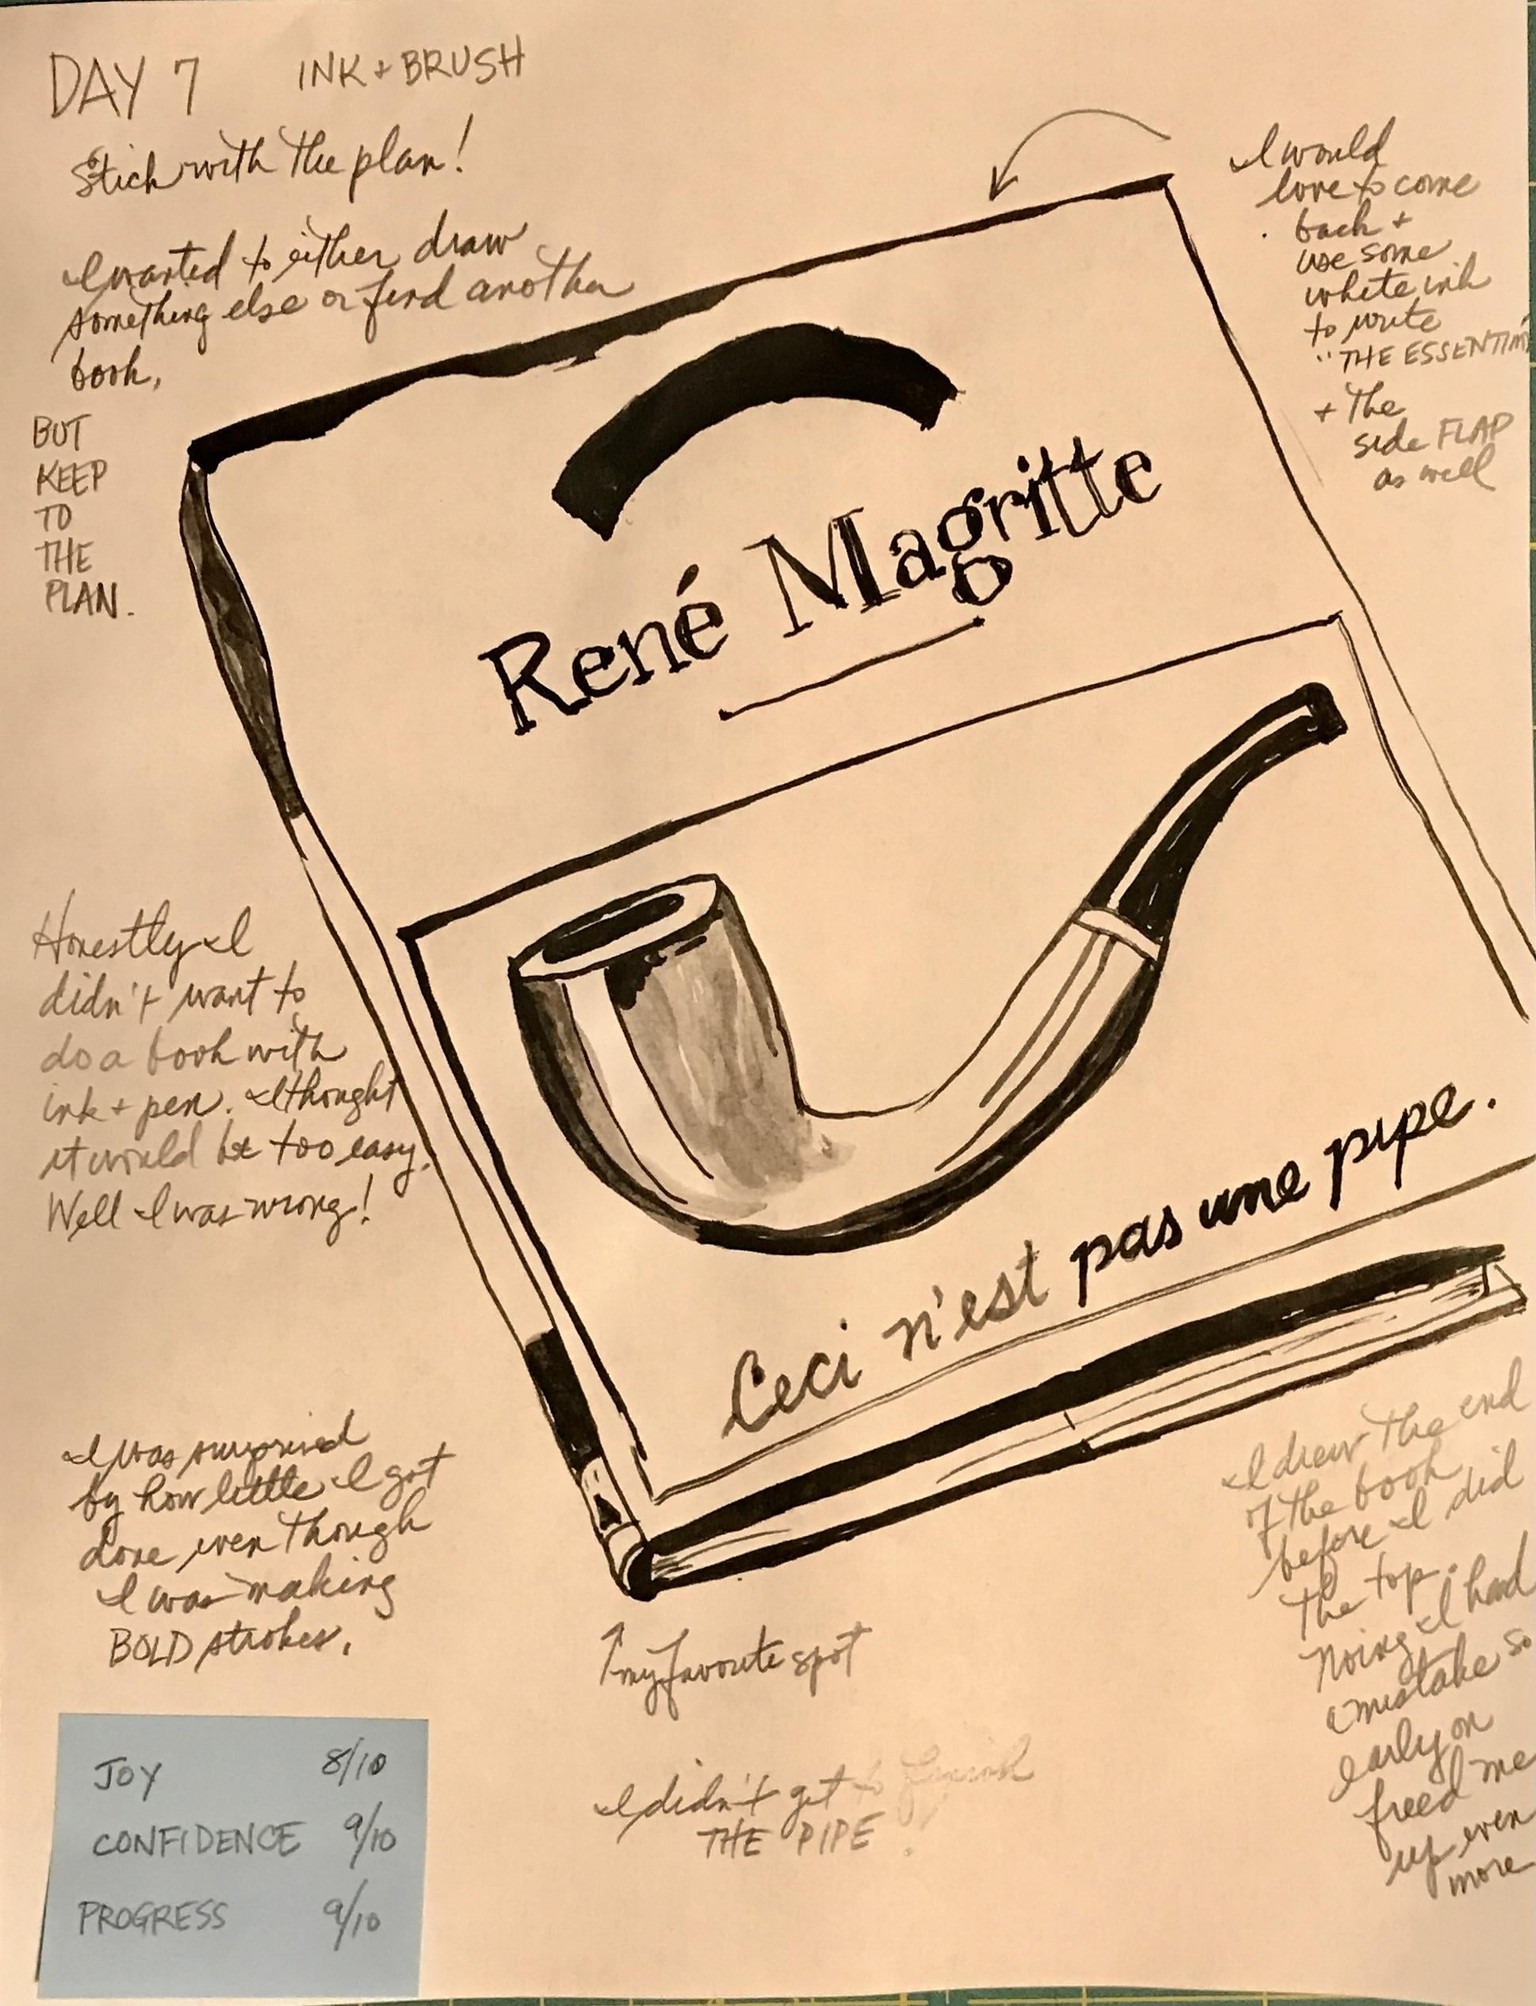 DAY 7 INK + BRUSH
Stick with the plan!
I wanted to either draw
something else or find another
book,
BUT
KEEP
TO
THE
PLAN.
I would
love to come
back +
use some
white ink
to write
"THE ESSENTIAL
+ the
side FLAP
as well
René Magritte
Honestly I
didn't want to
do a book with
ink + pen. I thought
it would be too easy.
Well I was wrong!
Ceci n'est pas une pipe.
I was surprised
by how little I got
done even though
I was making
BOLD strokes.
↑ my favorite spot
I didn't get to finish
THE PIPE.
I drew the end
of the book
before I did
the top.
Noing I had
a mistake so
early on
freed me
up even
more
JOY 8/10
CONFIDENCE 9/10
PROGRESS 9/10